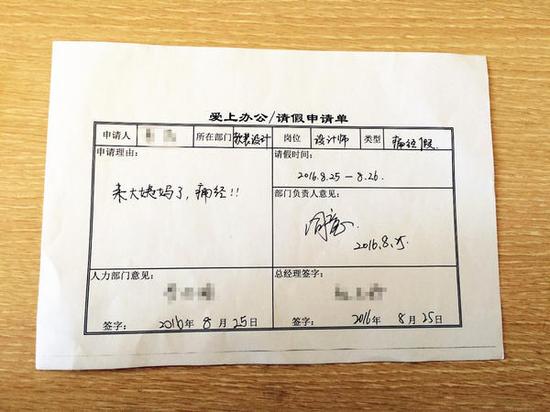 爱上办公/请假申请单
申请人 所在部门 软装设计 岗位 设计师 类型 痛经假
申请理由:
来大姨妈了,痛经!!
请假时间:
2016.8.25-8.26.
部门负责人意见:
同意
2016.8.25.
人力部门意见:
签字: 2016年 8 月 25日
总经理签字:
签字: 2016年 8 月 25日